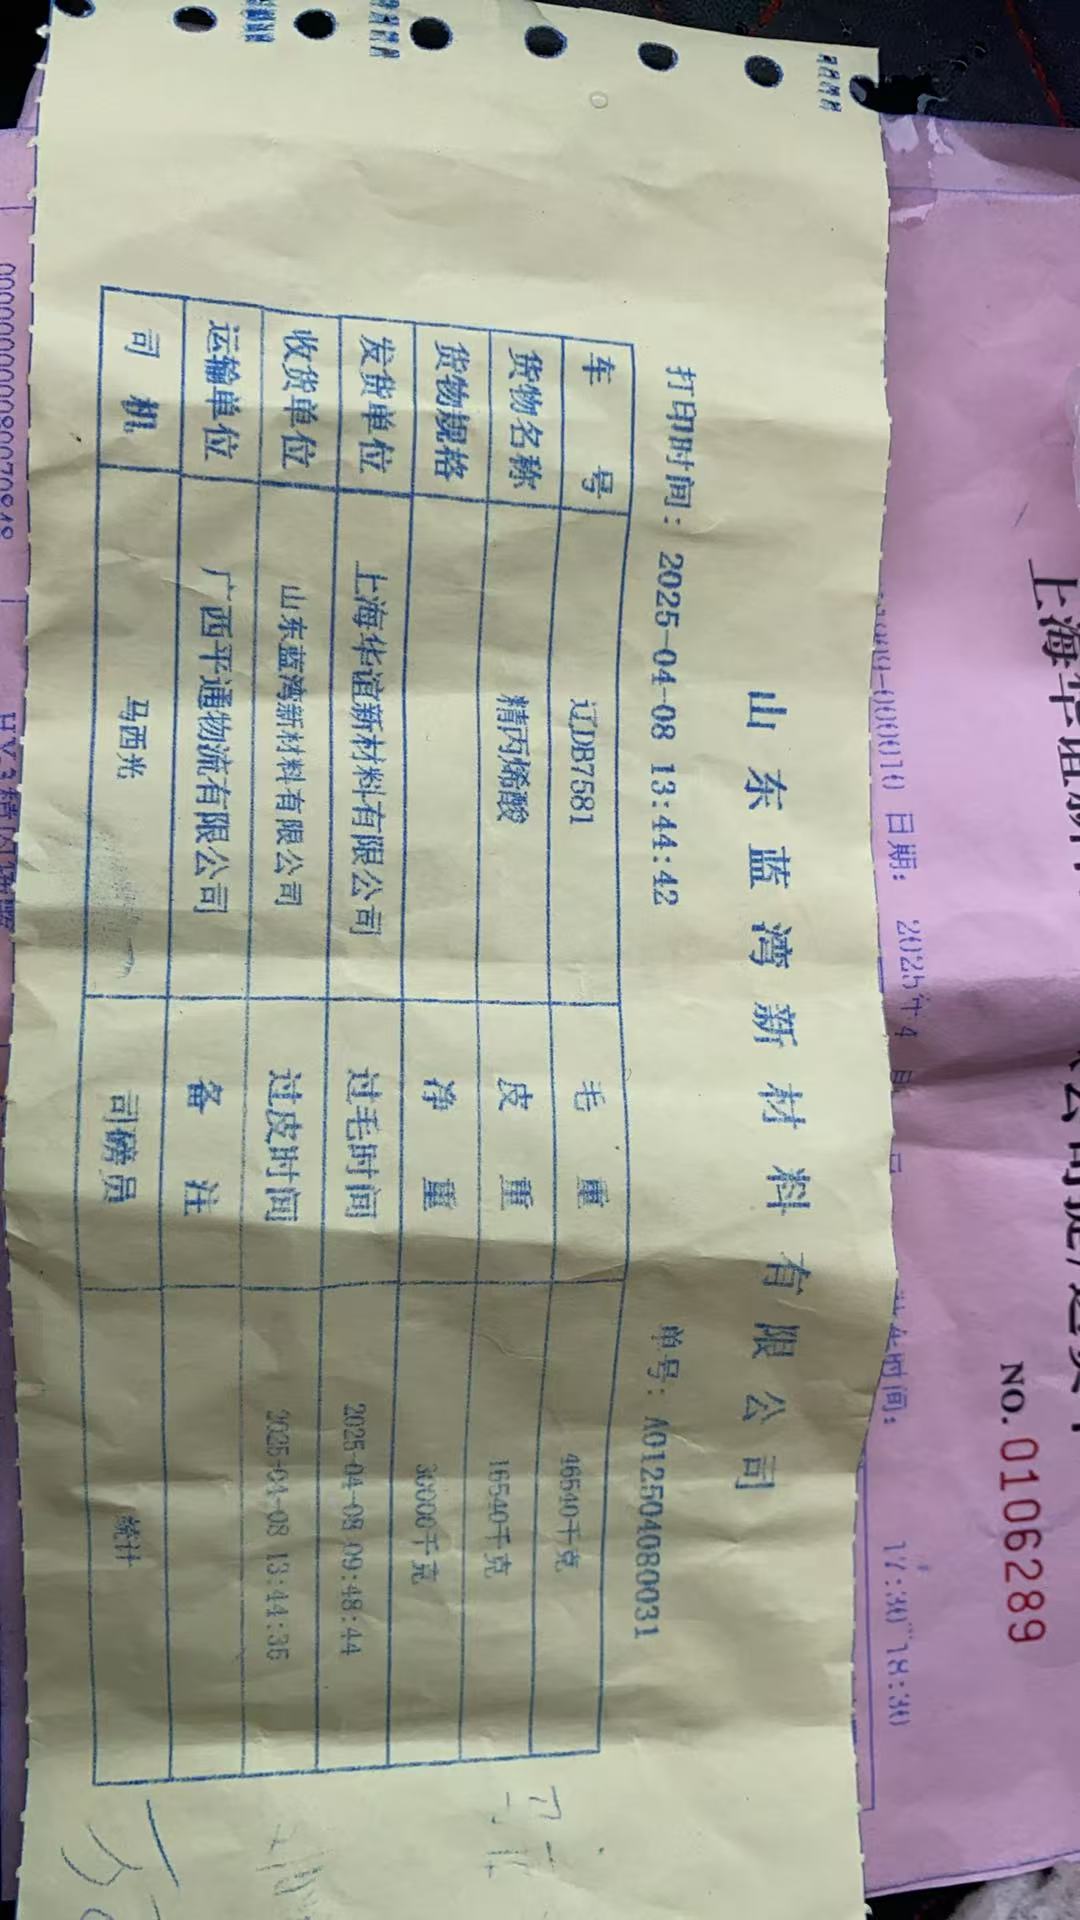 山东蓝湾新材料有限公司
打印时间：2025-04-08 13:44:42 单号：A012504080031
车号 辽DB7581 毛重 46540千克
货物名称 精丙烯酸 皮重 16540千克
货物规格 净重 30000千克
发货单位 上海华谊新材料有限公司 过毛时间 2025-04-08 09:48:44
收货单位 山东蓝湾新材料有限公司 过皮时间 2025-04-08 13:44:36
运输单位 广西平通物流有限公司 备注
司机 马西光 司磅员 统计
上海华谊新
NO. 0106289
日期： 2025年4月
时间： 17:30 18:30